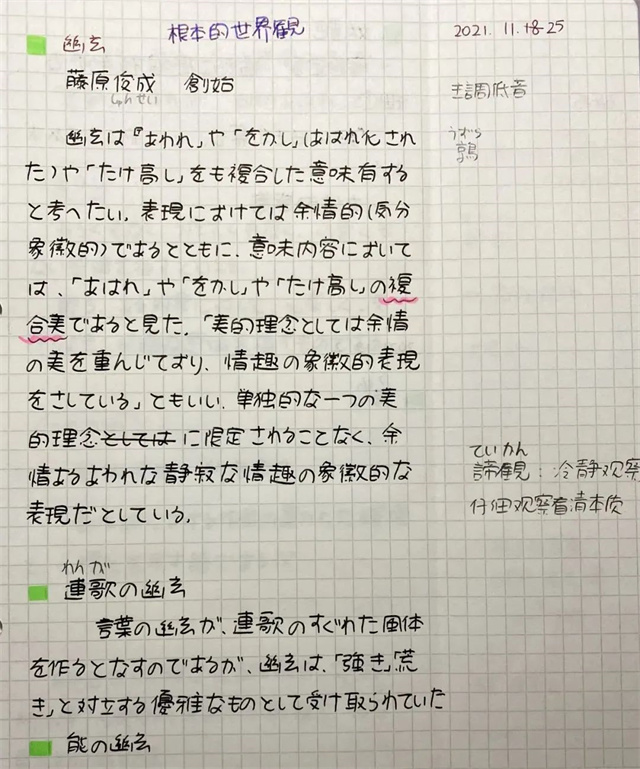 根本的世界観
2021. 11. 18-25
幽玄
藤原俊成 創始
しゅんせい
主調低音
幽玄は『あわれ』や「をかし」(あはれ化され
うずら
鶉
た)や「たけ高し」をも複合した意味有する
と考へたい。表現におけては余情的(気分
象徴的)であるとともに、意味内容において
は、「あはれ」や「をかし」や「たけ高し」の複
合美であると見た。「美的理念としては余情
の美を重んじており、情趣の象徴的表現
をさしている」ともいい、単独的な一つの美
的理念としてはに限定されることなく、余
ていかん
諦観：冷静观察
情あるあわれな静寂な情趣の象徴的な
仔细观察看清本质
表現だとしている。
れんが
連歌の幽玄
言葉の幽玄が、連歌のすぐれた風体
を作るとなすのであるが、幽玄は、「強き」「荒
き」と対立する優雅なものとして受け取られていた
能の幽玄